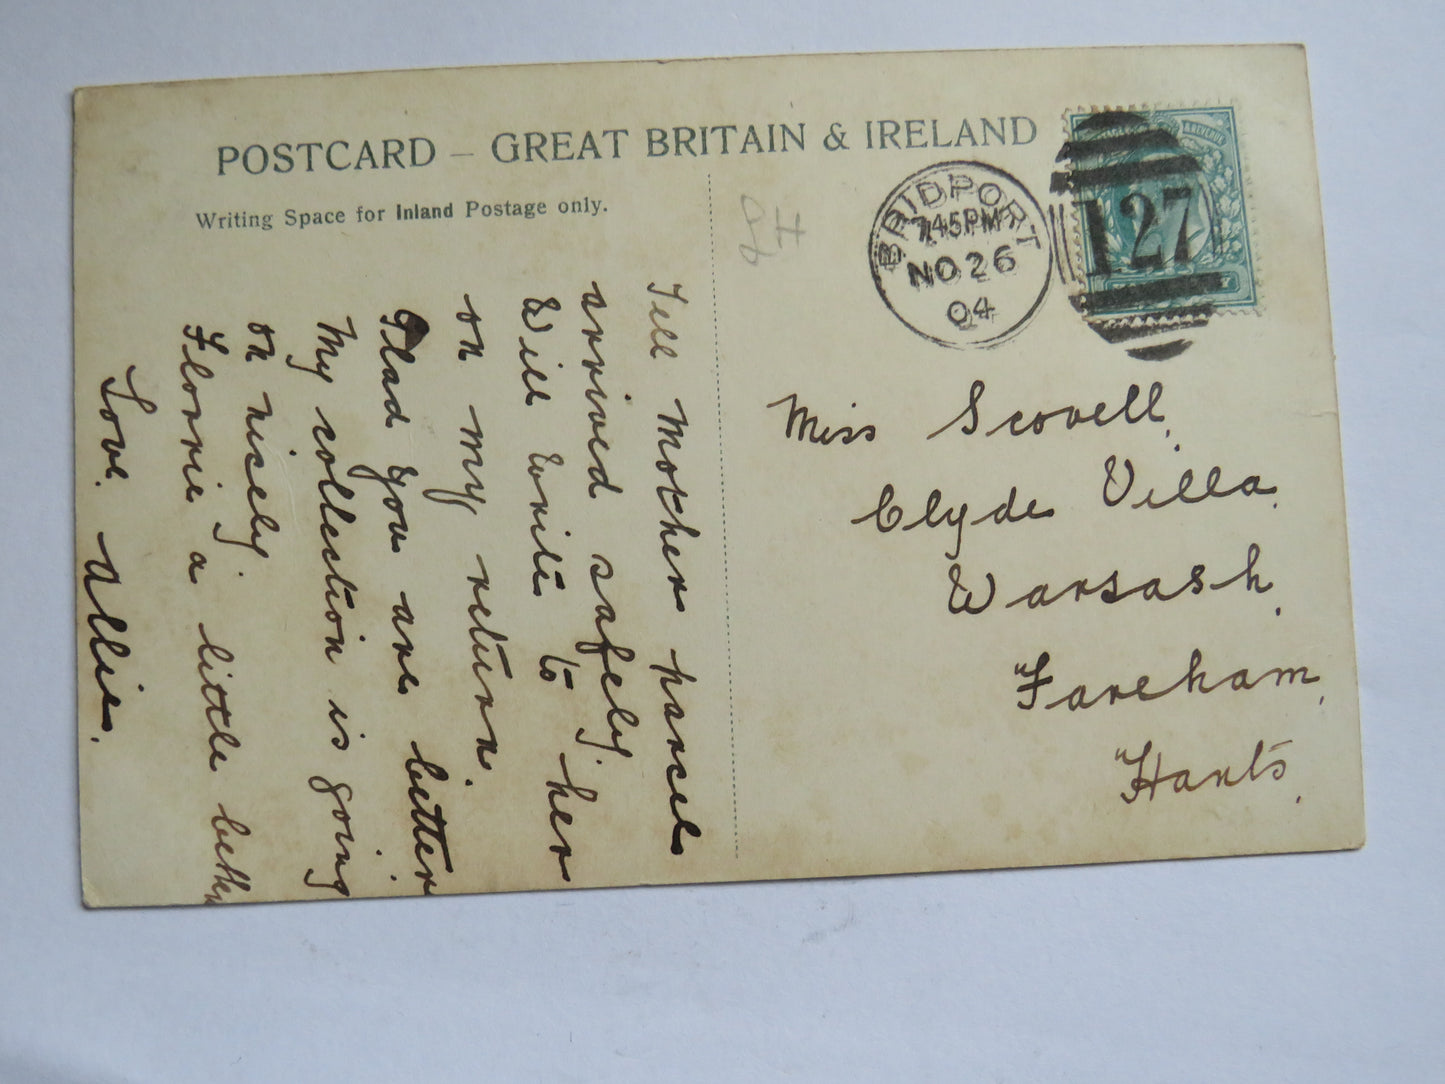 POSTCARD – GREAT BRITAIN & IRELAND
Writing Space for Inland Postage only.
BRIDPORT
7.45PM
NO 26
04
127
Tell Mother parcel
arrived safely.
Will write to her
on my return.
Glad you are better.
My collection is going
on nicely.
Florrie a little better
Love. Allie.
Miss Scovell,
Clyde Villa,
Warsash,
Fareham,
Hants,